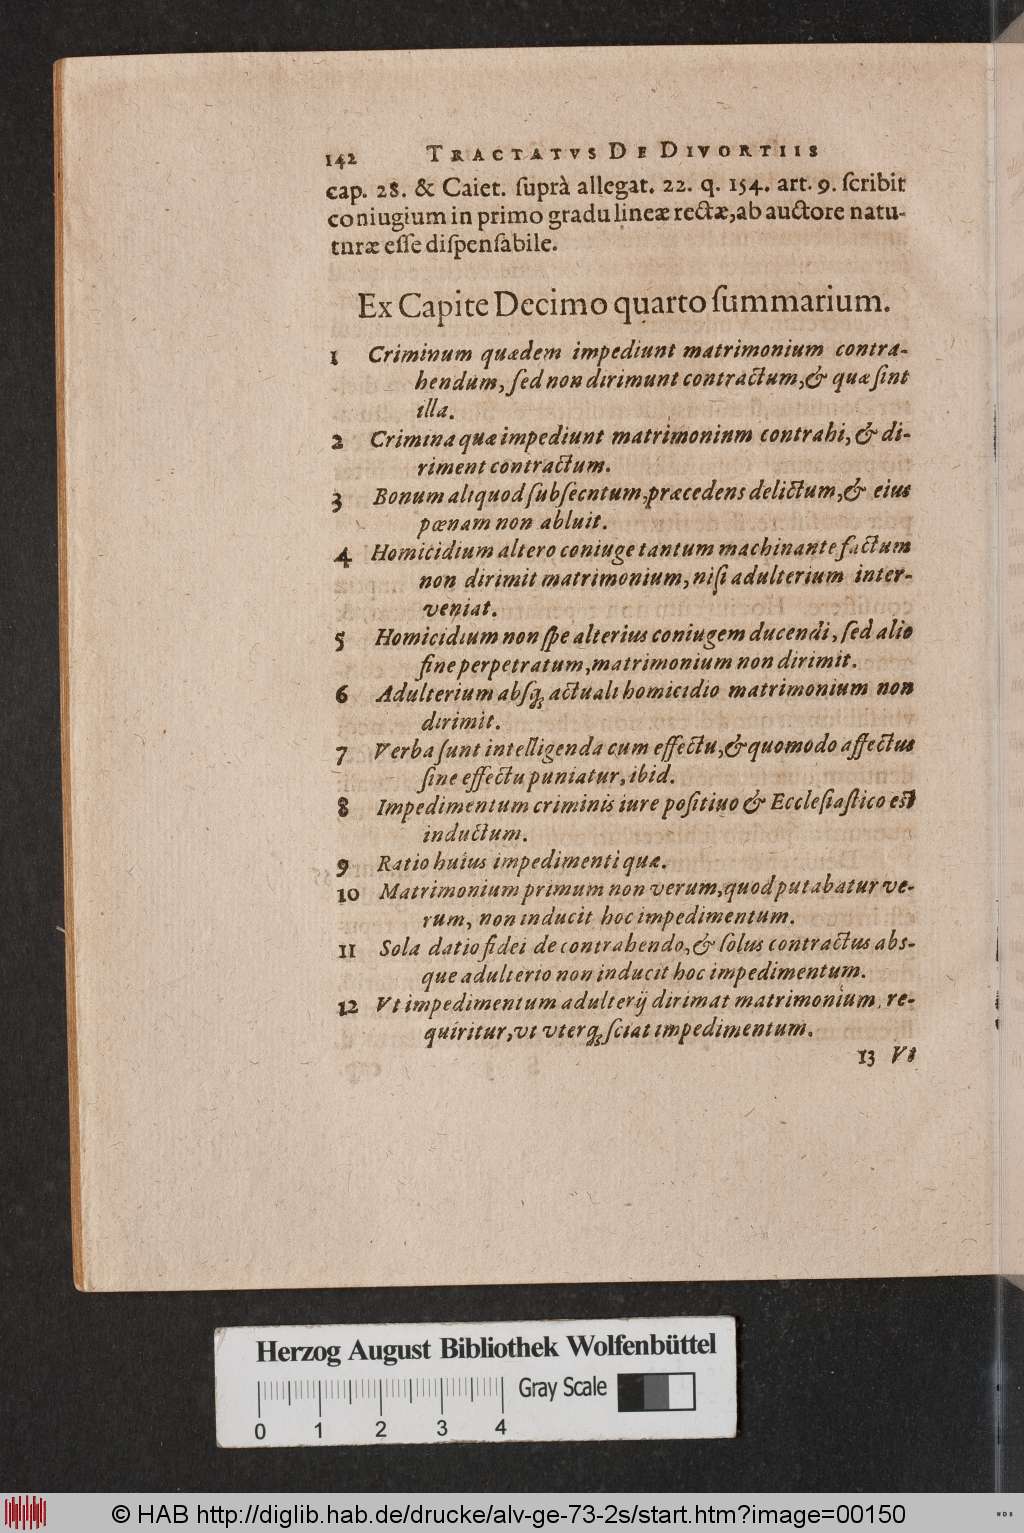 142 TRACTATVS DE DIVORTIIS
cap. 28. & Caiet. ſuprà allegat. 22. q. 154. art. 9. ſcribit
coniugium in primo gradu lineæ rectæ, ab auctore natu-
turæ eſſe diſpenſabile.
Ex Capite Decimo quarto ſummarium.
1 Criminum quædem impediunt matrimonium contra-
hendum, ſed non dirimunt contractum, & quæ ſint
illa.
2 Crimina quæ impediunt matrimoninm contrahi, & di-
riment contractum.
3 Bonum aliquod ſubſecntum, præcedens delictum, & eius
pœnam non abluit.
4 Homicidium altero coniuge tantum machinante factum
non dirimit matrimonium, niſi adulterium inter-
veniat.
5 Homicidium non ſpe alterius coniugem ducendi, ſed alio
fine perpetratum, matrimonium non dirimit.
6 Adulterium abſq; actuali homicidio matrimonium non
dirimit.
7 Verba ſunt intelligenda cum effectu, & quomodo affectus
ſine effectu puniatur, ibid.
8 Impedimentum criminis iure poſitiuo & Eccleſiaſtico eſt
inductum.
9 Ratio huius impedimenti quæ.
10 Matrimonium primum non verum, quod putabatur ve-
rum, non inducit hoc impedimentum.
11 Sola datio fidei de contrahendo, & ſolus contractus abs-
que adulterio non inducit hoc impedimentum.
12 Vt impedimentum adulterij dirimat matrimonium, re-
quiritur, vt vterq; ſciat impedimentum.
13 Vt
Herzog August Bibliothek Wolfenbüttel
Gray Scale
0 1 2 3 4
© HAB http://diglib.hab.de/drucke/alv-ge-73-2s/start.htm?image=00150